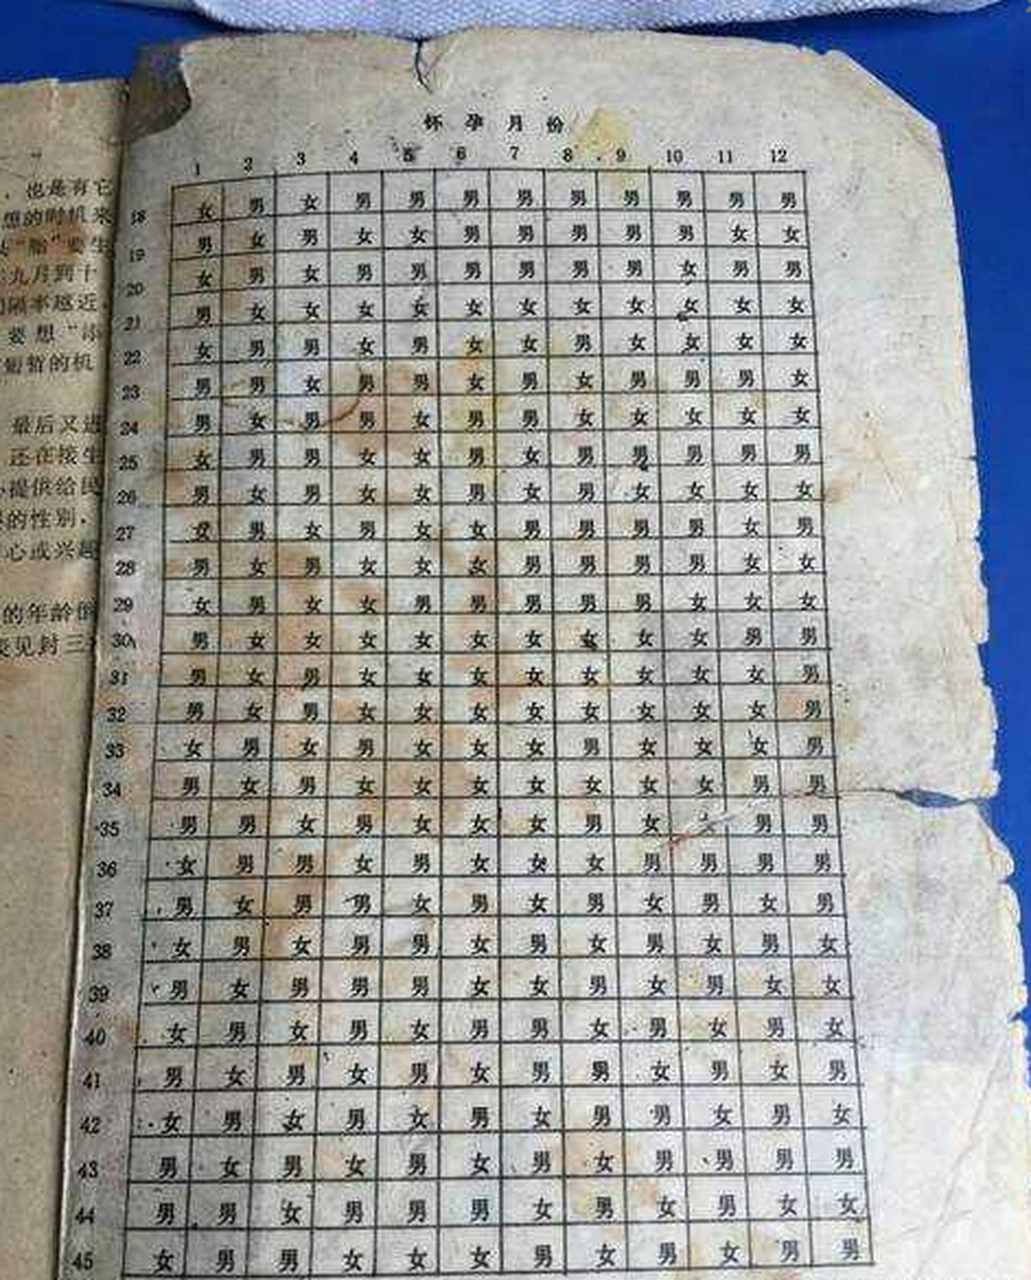 ，也是有它
想的时机来
"胎"要生
九月到十
率越近，
要想"添
短暂的机
最后又进
还在接生
提供给民
的性别，
心或兴趣
的年龄
见封三
怀孕月份
1 2 3 4 5 6 7 8 9 10 11 12
18 女 男 女 男 男 男 男 男 男 男 男 男
19 男 女 男 女 女 男 男 男 男 男 女 女
20 女 男 女 男 男 男 男 男 男 女 男 男
21 男 女 女 女 女 女 女 女 女 女 女 女
22 女 男 男 女 男 女 女 男 女 女 女 女
23 男 男 女 男 男 女 男 女 男 男 男 女
24 男 女 男 男 女 男 男 女 女 女 女 女
25 女 男 男 女 女 男 女 男 男 男 男 男
26 男 女 男 女 女 男 女 男 女 女 女 女
27 女 男 女 男 女 女 男 男 男 男 女 男
28 男 女 男 女 女 女 男 男 男 男 女 女
29 女 男 女 女 男 男 男 男 男 女 女 女
30 男 女 女 女 女 女 女 女 女 女 男 男
31 男 女 男 女 女 女 女 女 女 女 女 男
32 男 女 男 女 女 女 女 女 女 女 女 男
33 女 男 女 男 女 女 女 男 女 女 女 男
34 男 女 男 女 女 女 女 女 女 女 男 男
35 男 男 女 男 女 女 女 男 女 女 男 男
36 女 男 男 女 男 女 女 女 男 男 男 男
37 男 女 男 男 女 男 女 男 女 男 女 男
38 女 男 女 男 男 女 男 女 男 女 男 女
39 男 女 男 男 男 女 女 男 女 男 女 女
40 女 男 女 男 女 男 男 女 男 女 男 女
41 男 女 男 女 男 女 男 男 女 男 女 男
42 女 男 女 男 女 男 女 男 男 女 男 女
43 男 女 男 女 男 女 男 女 男 男 男 男
44 男 男 女 男 男 男 女 男 女 男 女 女
45 女 男 男 女 女 女 男 女 男 女 男 男